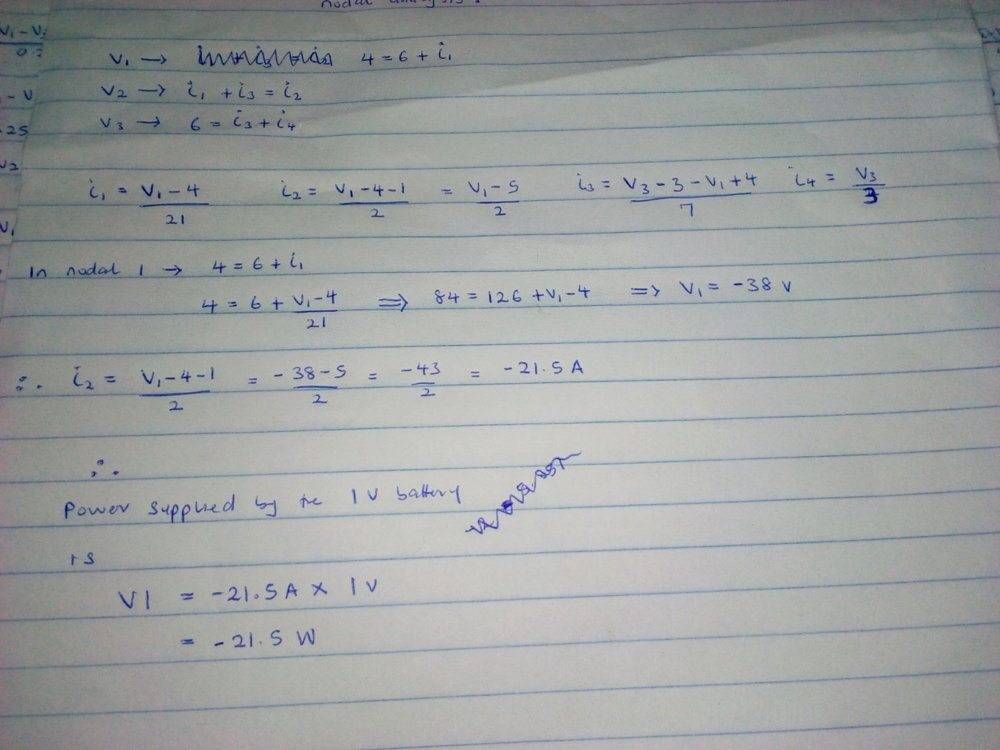 nodal analysis.
V₁ → 4 = 6 + i₁
V₂ → i₁ + i₃ = i₂
V₃ → 6 = i₃ + i₄
i₁ = (V₁ - 4)/21 i₂ = (V₁ - 4 - 1)/2 = (V₁ - 5)/2 i₃ = (V₃ - 3 - V₁ + 4)/7 i₄ = V₃/3
In nodal 1 → 4 = 6 + i₁
4 = 6 + (V₁ - 4)/21 ⟹ 84 = 126 + V₁ - 4 ⟹ V₁ = -38 V
∴ i₂ = (V₁ - 4 - 1)/2 = (-38 - 5)/2 = -43/2 = -21.5 A
∴
Power supplied by the 1 V battery
is
VI = -21.5 A × 1 V
= -21.5 W